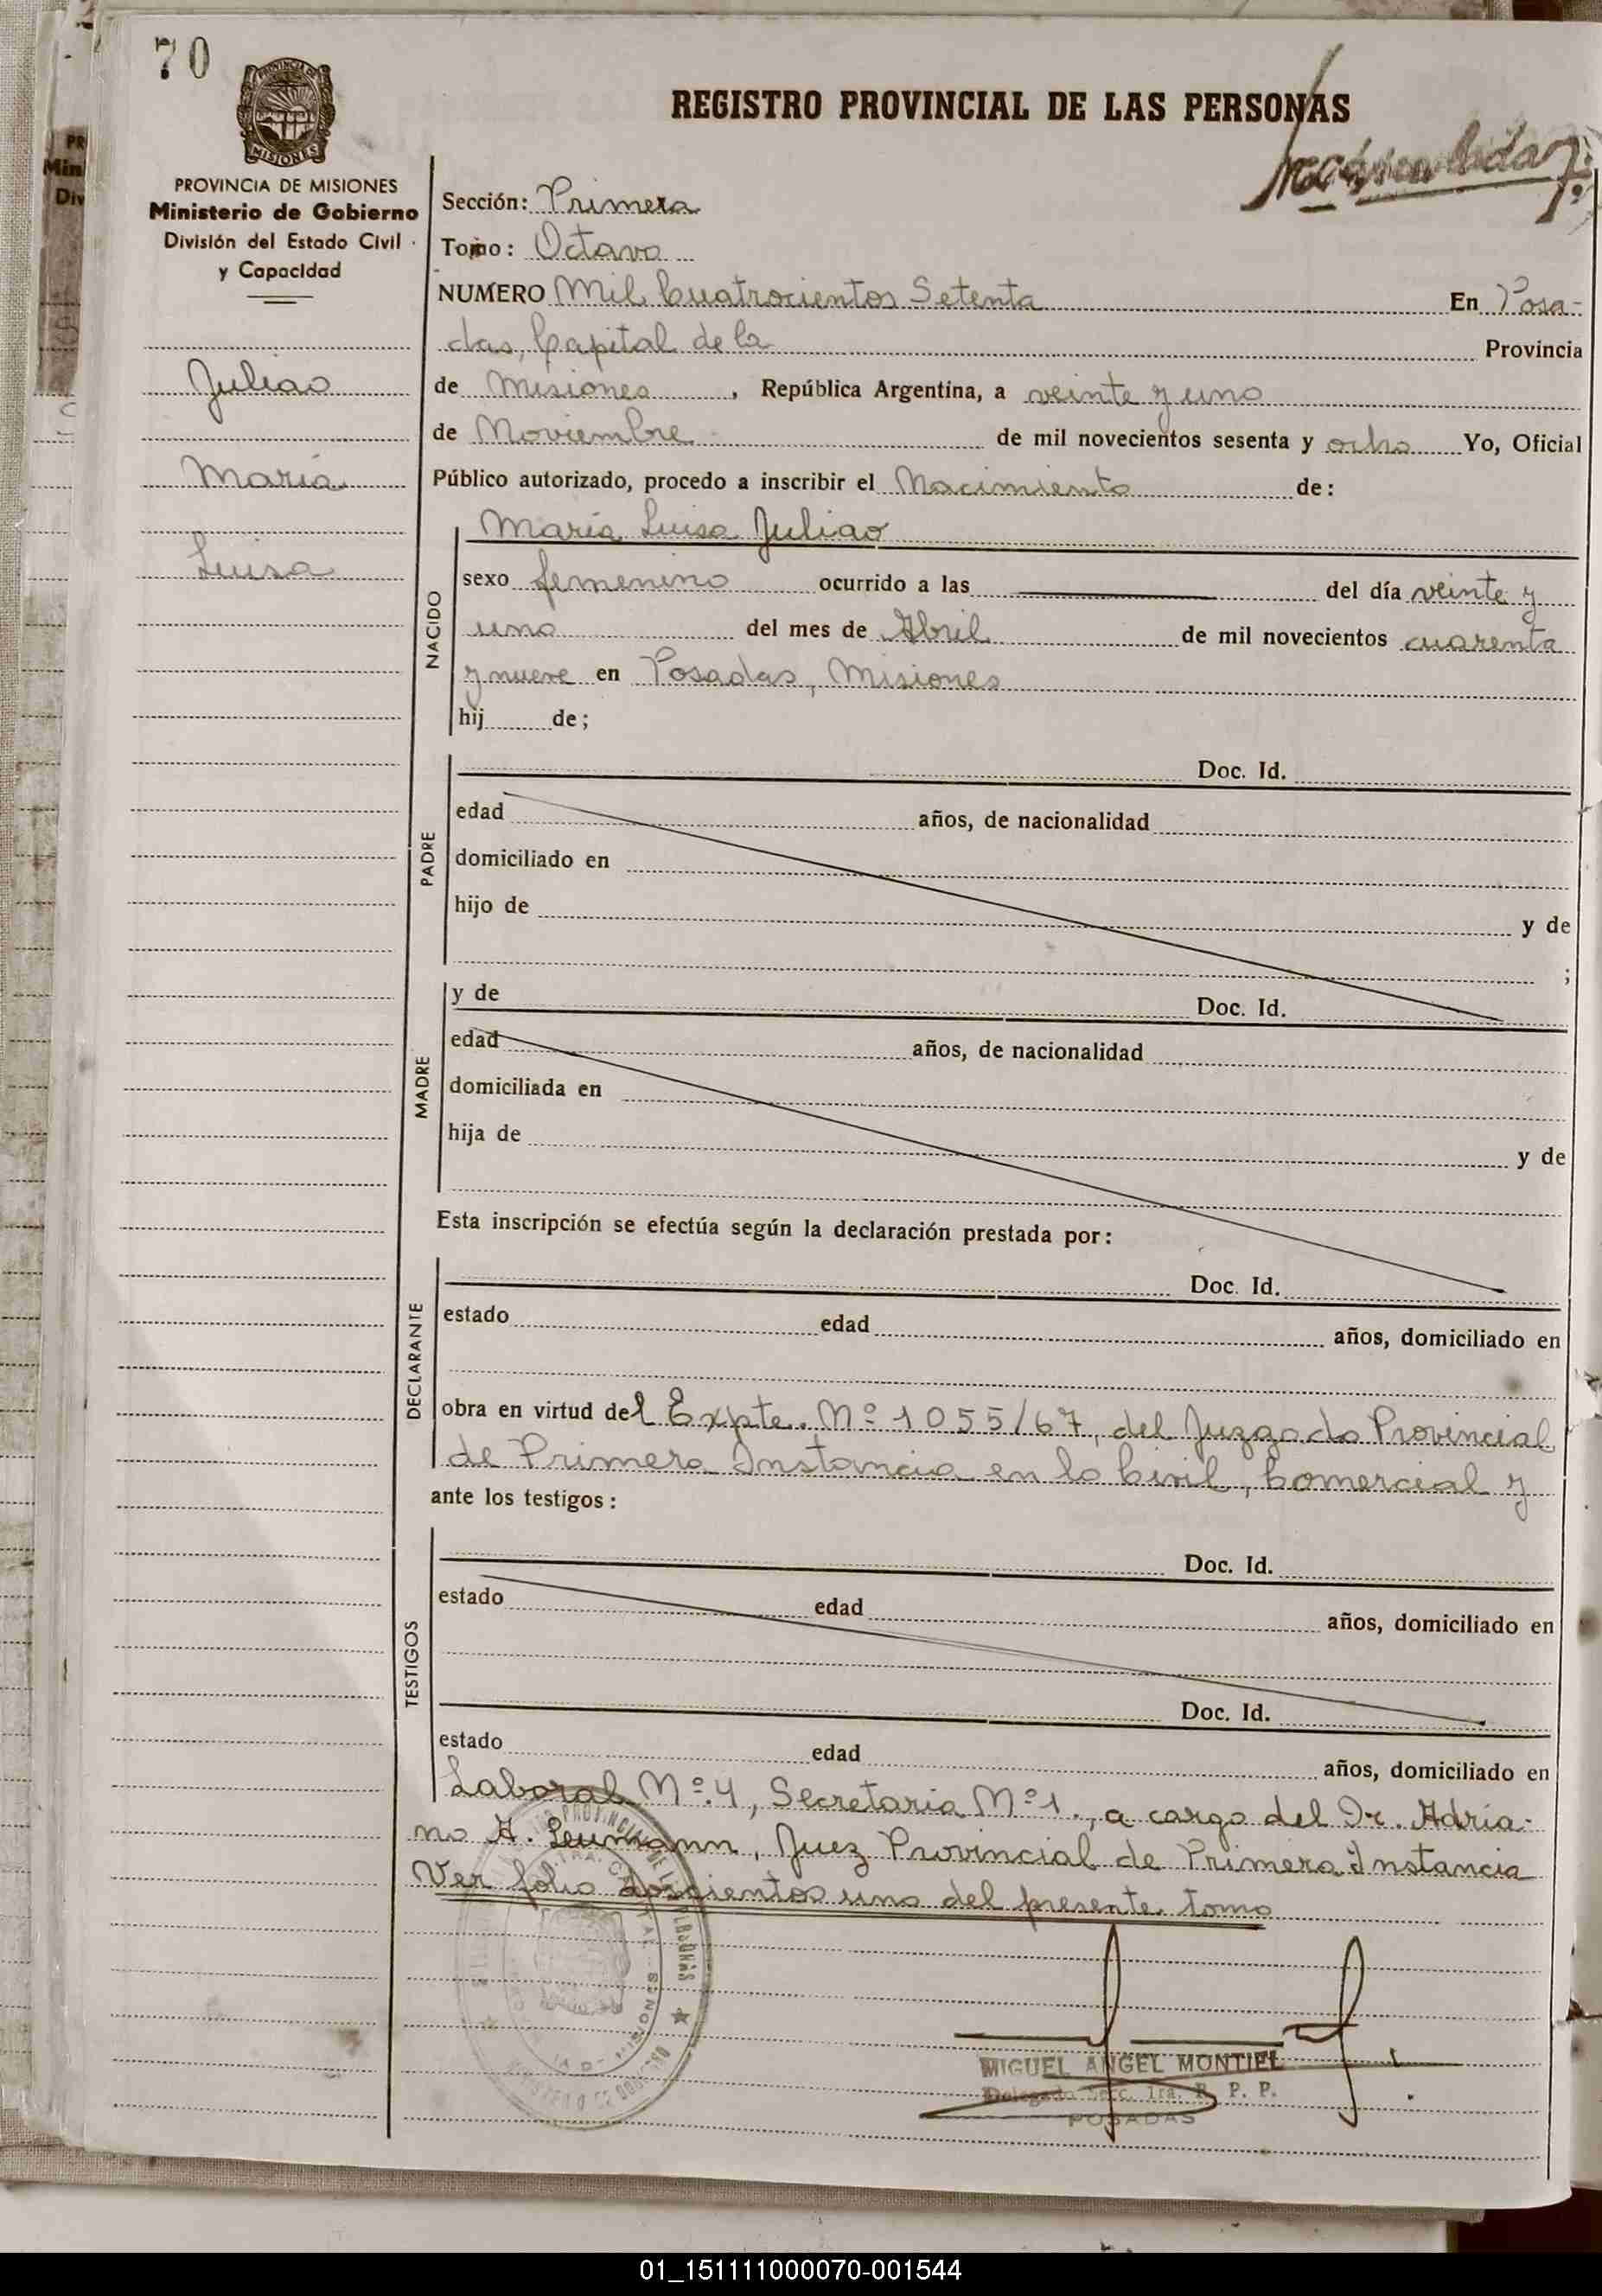 70
PROVINCIA DE MISIONES
Ministerio de Gobierno
División del Estado Civil
y Capacidad
Juliao
María
Luisa
REGISTRO PROVINCIAL DE LAS PERSONAS
Sección: Primera
Tomo: Octavo
NUMERO Mil Cuatrocientos Setenta En Posa-
das, Capital de la Provincia
de Misiones, República Argentina, a veinte y uno
de Noviembre de mil novecientos sesenta y ocho Yo, Oficial
Público autorizado, procedo a inscribir el Nacimiento de:
NACIDO
María Luisa Juliao
sexo femenino ocurrido a las del día veinte y
uno del mes de Abril de mil novecientos cuarenta
y nueve en Posadas, Misiones
hij de;
PADRE
Doc. Id.
edad años, de nacionalidad
domiciliado en
hijo de y de
;
MADRE
y de Doc. Id.
edad años, de nacionalidad
domiciliada en
hija de y de
Esta inscripción se efectúa según la declaración prestada por:
DECLARANTE
Doc. Id.
estado edad años, domiciliado en
obra en virtud del Expte. Nº 1055/67, del Juzgado Provincial
de Primera Instancia en lo Civil, Comercial y
ante los testigos:
TESTIGOS
Doc. Id.
estado edad años, domiciliado en
Doc. Id.
estado edad años, domiciliado en
Laboral Nº 4, Secretaria Nº 1., a cargo del Dr. Adria-
no A. Leumann, Juez Provincial de Primera Instancia
Ver folio doscientos uno del presente tomo
MIGUEL ANGEL MONTIEL
Delegado Secc. 1ra. R. P. P.
POSADAS
01_151111000070-001544